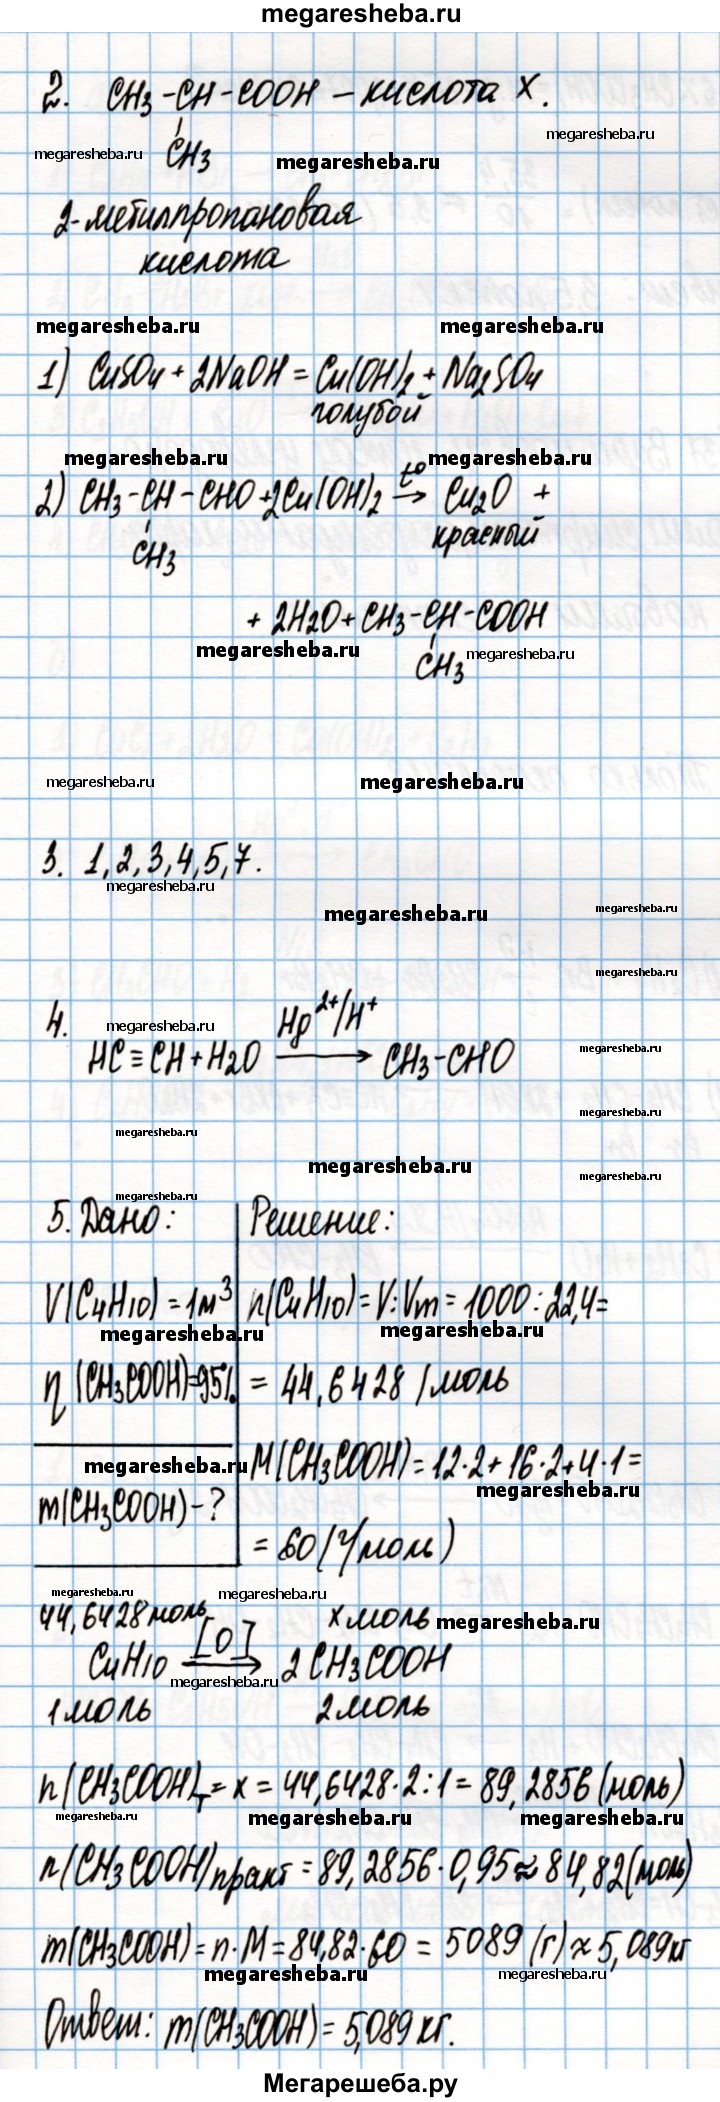 megaresheba.ru
2. CH3-CH-COOH - кислота X.
megaresheba.ru
megaresheba.ru CH3 megaresheba.ru
2-метилпропановая
кислота
megaresheba.ru megaresheba.ru
1) CuSO4 + 2NaOH = Cu(OH)2 + Na2SO4
голубой
megaresheba.ru megaresheba.ru
2) CH3-CH-CHO+2Cu(OH)2 →t° Cu2O +
CH3 красный
+ 2H2O + CH3-CH-COOH
megaresheba.ru CH3 megaresheba.ru
megaresheba.ru megaresheba.ru
3. 1,2,3,4,5,7.
megaresheba.ru
megaresheba.ru megaresheba.ru
megaresheba.ru
4. megaresheba.ru Hg2+/H+
HC≡CH+H2O → CH3-CHO
megaresheba.ru
megaresheba.ru
megaresheba.ru
megaresheba.ru megaresheba.ru
megaresheba.ru
5. Дано: Решение:
V(C4H10) = 1м3 n(C4H10) = V:Vm = 1000:22,4=
megaresheba.ru megaresheba.ru
η (CH3COOH)=95%. = 44,6428 /моль
megaresheba.ru M(CH3COOH) = 12·2+16·2+4·1=
megaresheba.ru
m(CH3COOH) - ? = 60 (г/моль)
megaresheba.ru megaresheba.ru
44,6428 моль x моль megaresheba.ru
C4H10 [O]→ 2CH3COOH
megaresheba.ru
1 моль 2 моль
n(CH3COOH)т = x = 44,6428·2:1 = 89,2856 (моль)
megaresheba.ru megaresheba.ru megaresheba.ru
n(CH3COOH)практ = 89,2856·0,95 ≈ 84,82 (моль)
m(CH3COOH) = n·M = 84,82·60 = 5089 (г) ≈ 5,089 кг
megaresheba.ru megaresheba.ru
Ответ: m(CH3COOH) = 5,089 кг.
Мегарешеба.ру